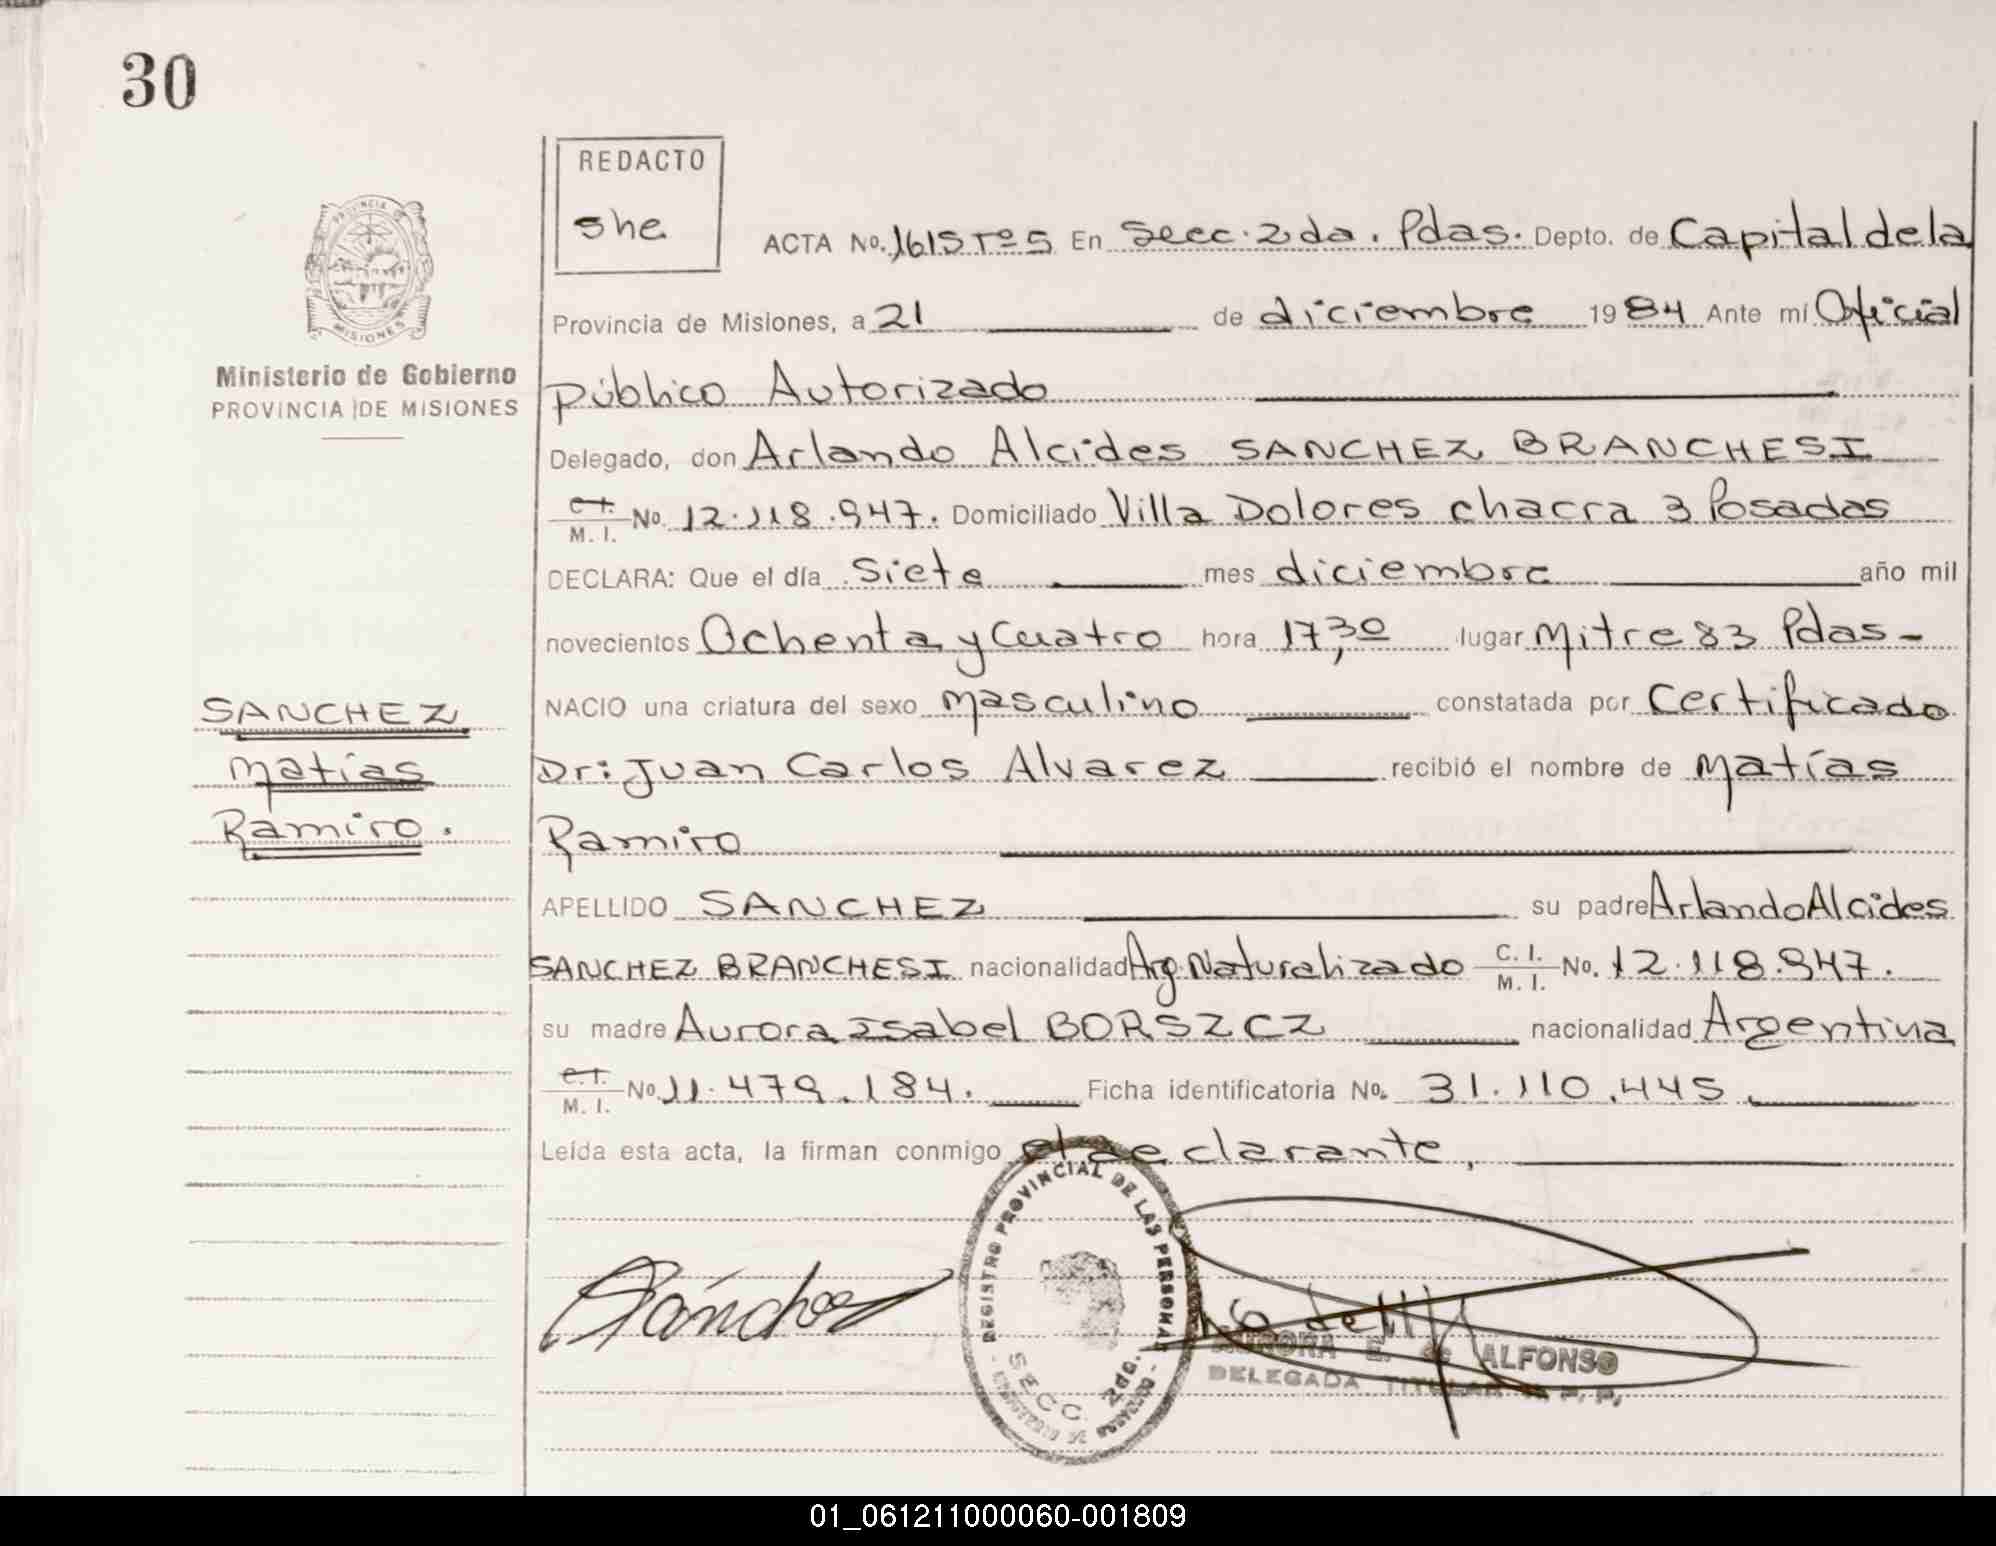 30
REDACTO
she
ACTA No. 1615 Tº 5 En Secc. 2da. Pdas. Depto. de Capital de la
Provincia de Misiones, a 21 de diciembre 1984 Ante mí Oficial
Ministerio de Gobierno
PROVINCIA DE MISIONES
Público Autorizado
Delegado, don Arlando Alcides SANCHEZ BRANCHESI
C.I. M. I. No. 12.118.947. Domiciliado Villa Dolores chacra 3 Posadas
DECLARA: Que el día Siete mes diciembre año mil
novecientos Ochenta y Cuatro hora 17,30 lugar Mitre 83 Pdas-
SANCHEZ
Matías
Ramiro.
NACIO una criatura del sexo masculino constatada por Certificado
Dr: Juan Carlos Alvarez recibió el nombre de Matías
Ramiro
APELLIDO SANCHEZ su padre Arlando Alcides
SANCHEZ BRANCHESI nacionalidad Arg. Naturalizado C. I. M. I. No. 12.118.947.
su madre Aurora Isabel BORSZCZ nacionalidad Argentina
C.I. M. I. No. 11.479.184. Ficha identificatoria No. 31.110.445.
Leída esta acta, la firman conmigo el declarante,
Sánchez
REGISTRO PROVINCIAL DE LAS PERSONAS
SECC. 2da.
AURORA E. de ALFONSO
DELEGADA TITULAR R. P. P.
01_061211000060-001809